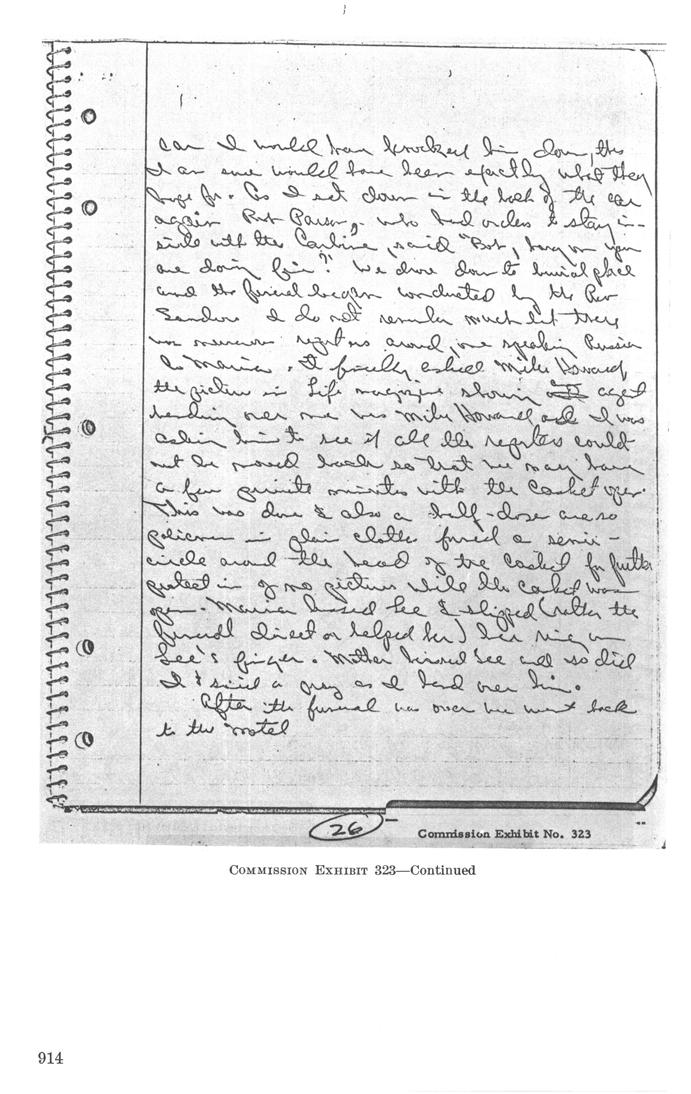 can I would have knocked him down, this
I am sure would have been exactly what they
hope for. As I set down in the back of the car
again Bob Parsons, who had orders to stay in-
side with the Carbine, said "Bob, hang on you
are doing fine". We drove down to burial place
and the funeral began conducted by the Rev
Sanders I do not remember much but there
was numerous reporters around, one speaking Russian
to Marina. I finally asked Mike Howard,
the picture in Life magazine showing agent
leaning over me was Mike Howard and I was
asking him to see if all the reporters could
not be moved back so that we may have
a few private minutes with the casket open.
This was done & also a half-dozen are so
policemen in plain clothes formed a semi-
circle around the head of the casket for further
protect in of no pictures while the casket was
open. Marina kissed Lee & slipped (rather the
funeral director helped her) her ring on
Lee's finger. Mother kissed Lee and so did
I & said a pray as I bend over him.
After the funeral was over we went back
to the motel
26
Commission Exhibit No. 323
COMMISSION EXHIBIT 323—Continued
914